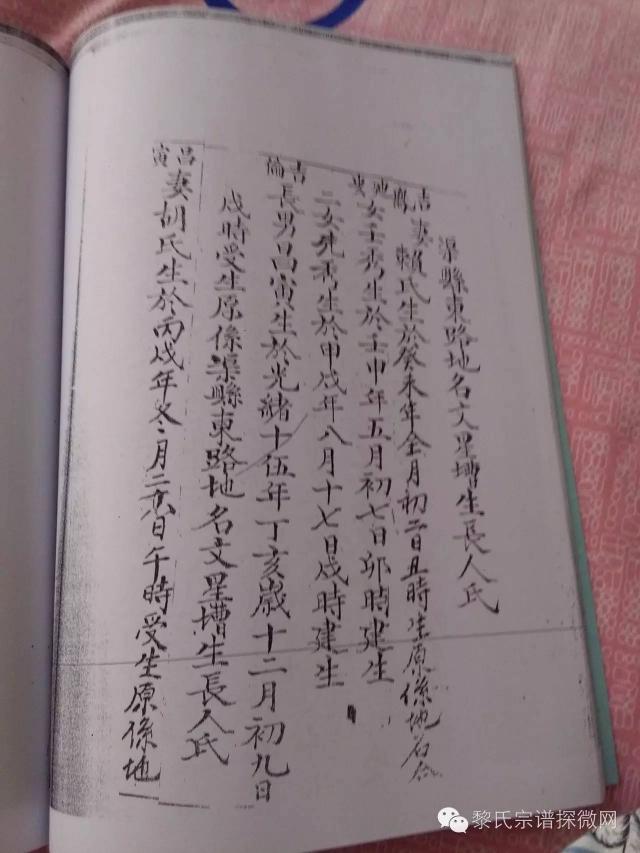 渠縣東路地名文星塆生長人氏
吉 妻賴氏生於癸未年全月初二日丑時生原係地名合
女壬秀生於壬申年五月初七日卯時建生
二女 秀生於甲戌年八月十七日戌時建生
吉倫長男昌寅生於光緒十伍年丁亥歲十二月初九日
戌時受生原係渠縣東路地名文星塆生長人氏
昌寅妻胡氏生於丙戌年冬月二 日午時受生原係地
黎氏宗谱探微网